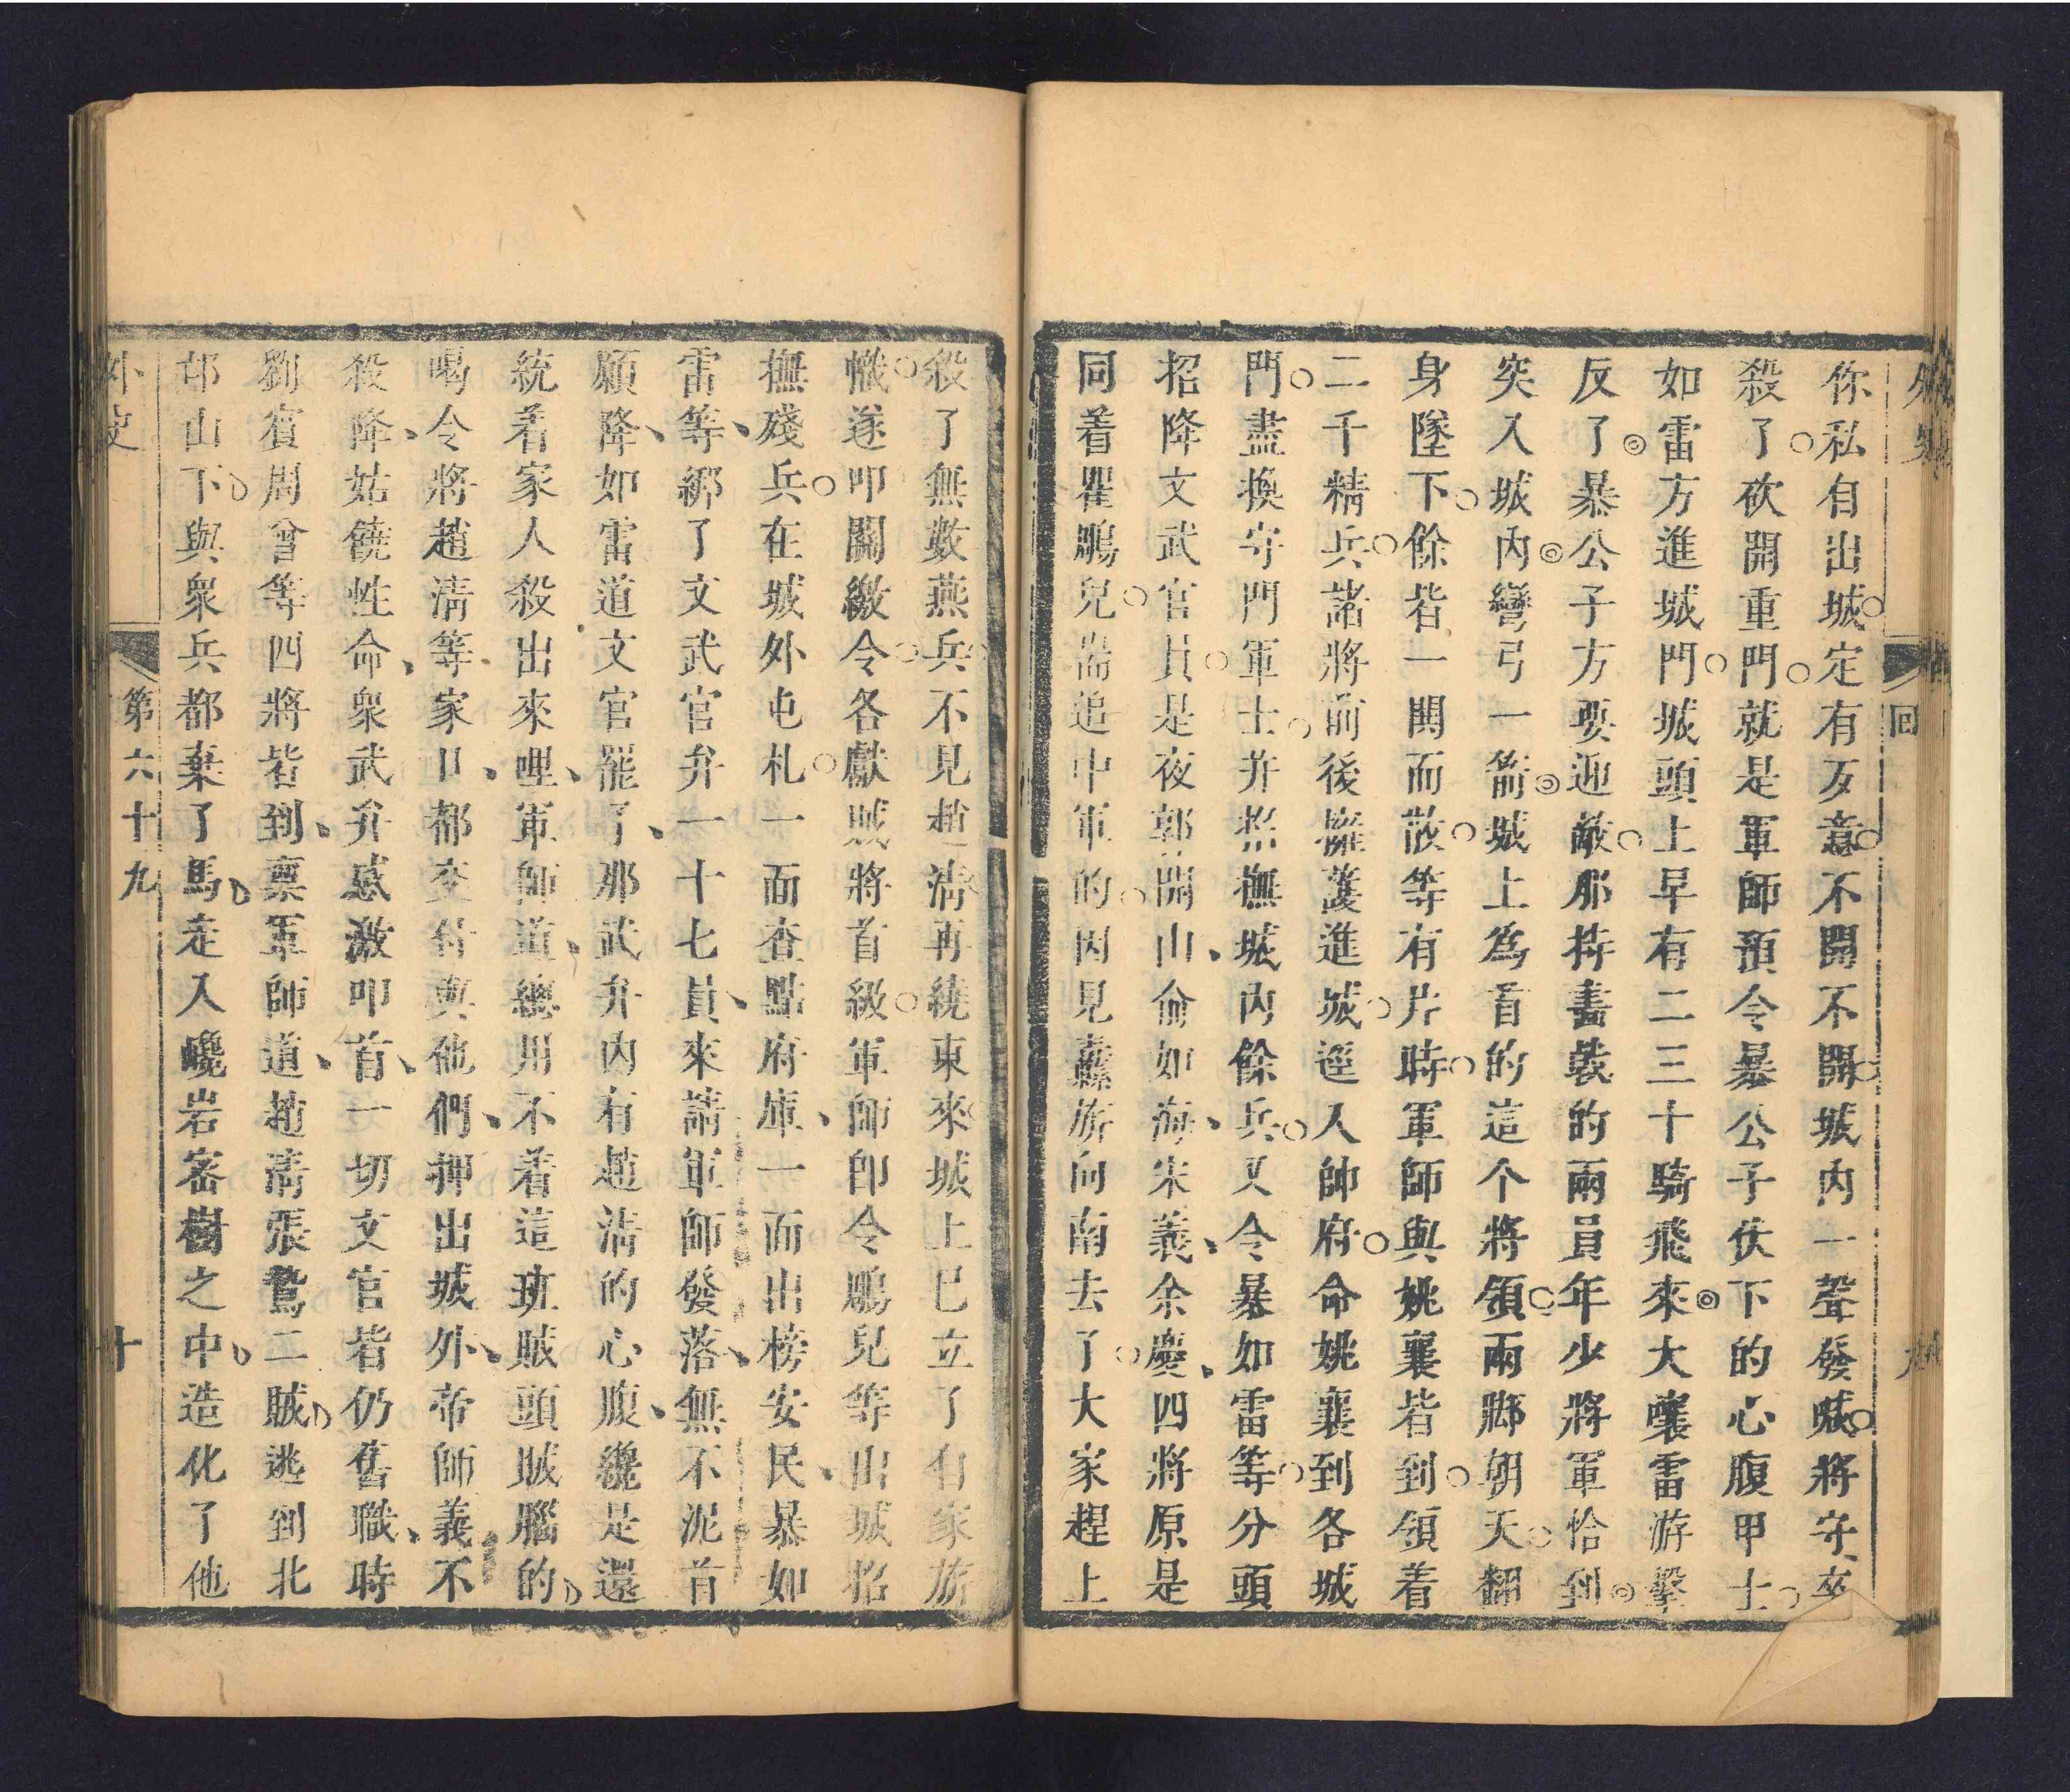 外史
回
你私自出城定有歹意不開不開城内一聲發喊將守卒
殺了砍開重門就是軍師預令暴公子伏下的心腹甲士
如雷方進城門城頭上早有二三十騎飛來大嚷雷游擊
反了暴公子方要迎敵那持畵戟的兩員年少將軍恰到
突入城内彎弓一箭城上爲首的這个將領兩脚朝天翻
身墜下餘皆一閧而散等有片時軍師與姚襄皆到領着
二千精兵諸將前後擁護進城逕入帥府命姚襄到各城
門盡換守門軍士并招撫城内餘兵又令暴如雷等分頭
招降文武官員是夜郭開山俞如海宋義余慶四將原是
同着瞿鵰兒耑追中軍的因見纛旂向南去了大家趕上
殺了無數燕兵不見趙淸再繞東來城上已立了自家旂
幟遂叩關繳令各獻賊將首級軍師卽令鵰兒等出城招
撫殘兵在城外屯札一面查點府庫一面出榜安民暴如
雷等綁了文武官弁一十七員來請軍師發落無不泥首
願降如雷道文官罷了那武弁内有趙淸的心腹纔是還
統着家人殺出來哩軍師道總用不着這班賊頭賊腦的
喝令將趙淸等家口都交付與他們押出城外帝師義不
殺降姑饒性命衆武弁感激叩首一切文官皆仍舊職時
劉賓周曾等四將皆到禀軍師道趙淸張鶩二賊逃到北
邙山下與衆兵都棄了馬走入巉岩密樹之中造化了他
外史
第六十九
十